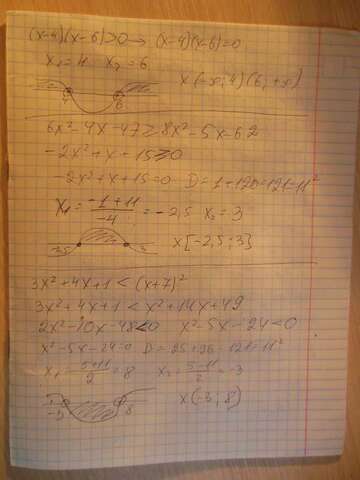 (x-4)(x-6)>0 → (x-4)(x-6)=0
x₁=4 x₂=6
4 6 x(-∞;4)(6;+∞)
6x²-4x-47≥8x²-5x-62
-2x²+x+15≥0
-2x²+x+15=0 D=1+120=121=11²
x₁=(-1+11)/-4=-2,5 x₂=3
-2,5 3 x[-2,5;3]
3x²+4x+1<(x+7)²
3x²+4x+1<x²+14x+49
2x²-10x-48<0 x²-5x-24<0
x²-5x-24=0 D=25+96=121=11²
x₁=(5+11)/2=8 x₂=(5-11)/2=-3
-3 8 x(-3;8)